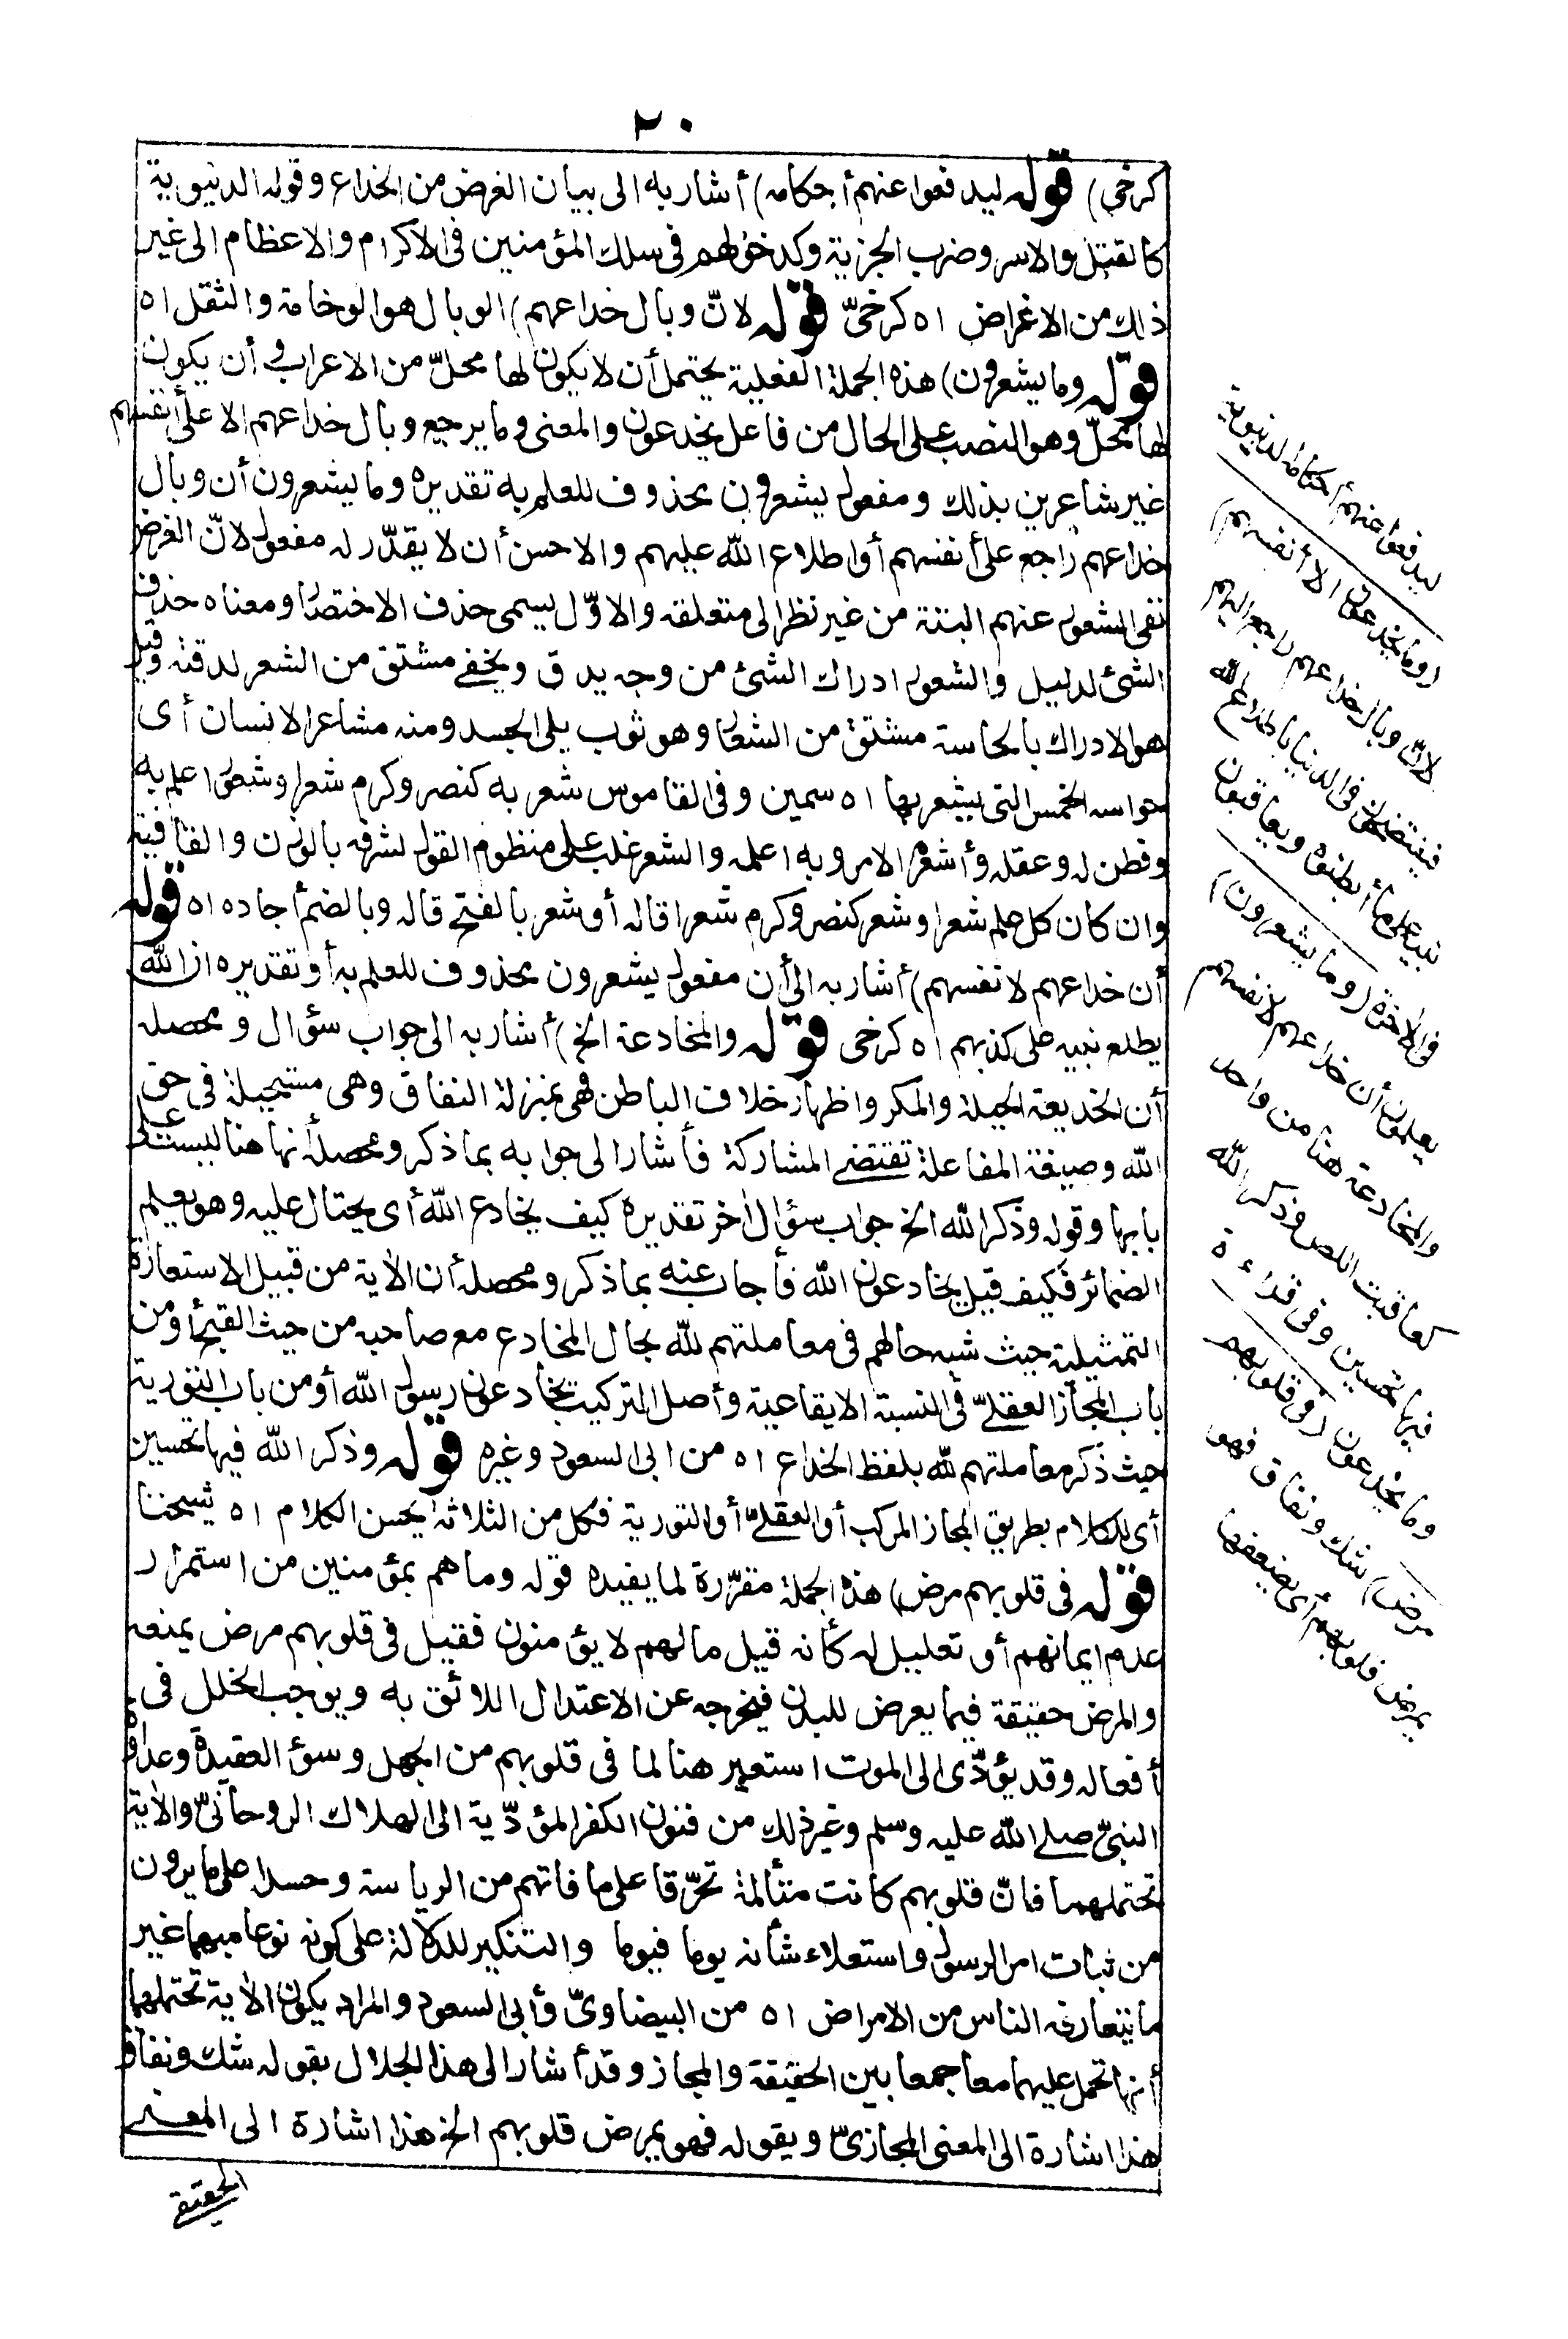 ٢٠
كرخي) قوله ليدفعوا عنهم أحكامه) أشار به الى بيان الغرض من الخداع وقوله الدنيوية
كالقتل والاسر وضرب الجزية وكدخولهم فى سلك المؤمنين فى الاكرام والاعظام الى غير
ذلك من الاغراض اه كرخىّ قوله لانّ وبال خداعهم) الوبال هو الوخامة والثقل اه
قوله وما يشعرون) هذه الجملة الفعلية يحتمل أن لا يكون لها محلّ من الاعراب وأن يكون
لها محلّ وهو النصب على الحال من فاعل يخدعون والمعنى وما يرجع وبال خداعهم الا على أنفسهم
غير شاعرين بذلك ومفعول يشعرون محذوف للعلم به تقديره وما يشعرون أن وبال
خداعهم راجع على أنفسهم أو اطلاع الله عليهم والاحسن أن لا يقدّر له مفعول لانّ الغرض
نفى الشعور عنهم البتة من غير نظر الى متعلقه والاوّل يسمى حذف الاختصار ومعناه حذف
الشئ لدليل والشعور ادراك الشئ من وجه يدق ويخفى مشتق من الشعر لدقته وقيل
هو الادراك بالحاسة مشتق من الشعار وهو ثوب يلى الجسد ومنه مشاعر الانسان أى
حواسه الخمس التى يشعر بها اه سمين وفى القاموس شعر به كنصر وكرم شعرا وشعورا علم به
وفطن له وعقله وأشعره الامر وبه اعلمه والشعر غلب على منظوم القول لشرفه بالوزن والقافية
وان كان كل علم شعرا وشعر كنصر وكرم شعرا قاله أو شعر بالفتح قاله وبالضم أجاده اه قوله
أن خداعهم لانفسهم) أشار به الى أن مفعول يشعرون محذوف للعلم به أو تقديره ان الله
يطلع نبيه على كذبهم اه كرخى قوله والمخادعة الخ) أشار به الى جواب سؤال ومحصله
أن الخديعة الحيلة والمكر واظهار خلاف الباطن فهى بمنزلة النفاق وهى مستحيلة فى حق
الله وصيغة المفاعلة تقتضى المشاركة فأشار الى جوابه بما ذكر ومحصله أنها هنا ليست على
بابها وقوله وذكر الله الخ جواب سؤال اخر تقديره كيف يخادع الله أى يحتال عليه وهو يعلم
الضمائر فكيف قيل يخادعون الله فأجاب عنه بما ذكر ومحصله أن الاية من قبيل الاستعارة
التمثيلية حيث شبه حالهم فى معاملتهم لله بحال المخادع مع صاحبه من حيث القبح أو من
باب المجاز العقلىّ فى النسبة الايقاعية وأصل التركيب يخادعون رسول الله أو من باب التورية
حيث ذكر معاملتهم لله بلفظ الخداع اه من ابى السعود وغيره قوله وذكر الله فيها تحسين
أى للكلام بطريق المجاز المركب أو العقلىّ أو التورية فكل من الثلاثة يحسن الكلام اه شيخنا
قوله فى قلوبهم مرض) هذه الجملة مقرّرة لما يفيده قوله وما هم بمؤمنين من استمرار
عدم ايمانهم أو تعليل له كأنه قيل ما لهم لا يؤمنون فقيل فى قلوبهم مرض يمنعه
والمرض حقيقة فيما يعرض للبدن فيخرجه عن الاعتدال اللائق به ويوجب الخلل فى
أفعاله وقد يؤدّى الى الموت استعير هنا لما فى قلوبهم من الجهل وسوء العقيدة وعداوة
النبىّ صلى الله عليه وسلم وغير ذلك من فنون الكفر المؤدّية الى الهلاك الروحانىّ والاية
تحتملهما فانّ قلوبهم كانت متألمة تحرّقا على ما فاتهم من الرياسة وحسدا على ما يرون
من ثبات امر الرسول واستعلاء شأنه يوما فيوما والتنكير للدلالة على كونه نوعا مبهما غير
ما يتعارفه الناس من الامراض اه من البيضاوىّ وأبى السعود والمراد بكون الاية تحتملهما
أنها تحمل عليهما معا جمعا بين الحقيقة والمجاز وقد أشار الى هذا الجلال بقوله شك ونفاق
هذا اشارة الى المعنى المجازىّ وبقوله فهو يمرض قلوبهم الخ هذا اشارة الى المعنى
الحقيقى
ليدفعوا عنهم أحكامه الدنيوية
(وما يخدعون الا أنفسهم)
لانّ وبال خداعهم راجع اليهم
فيفتضحون فى الدنيا باطلاع الله
نبيه على ما أبطنوه ويعاقبون
فى الآخرة (وما يشعرون)
يعلمون أن خداعهم لانفسهم
والمخادعة هنا من واحد
كعاقبت اللص وذكر الله
فيها تحسين وفى قراءة
وما يخدعون (فى قلوبهم
مرض) شك ونفاق فهو
يمرض قلوبهم أى يضعفها